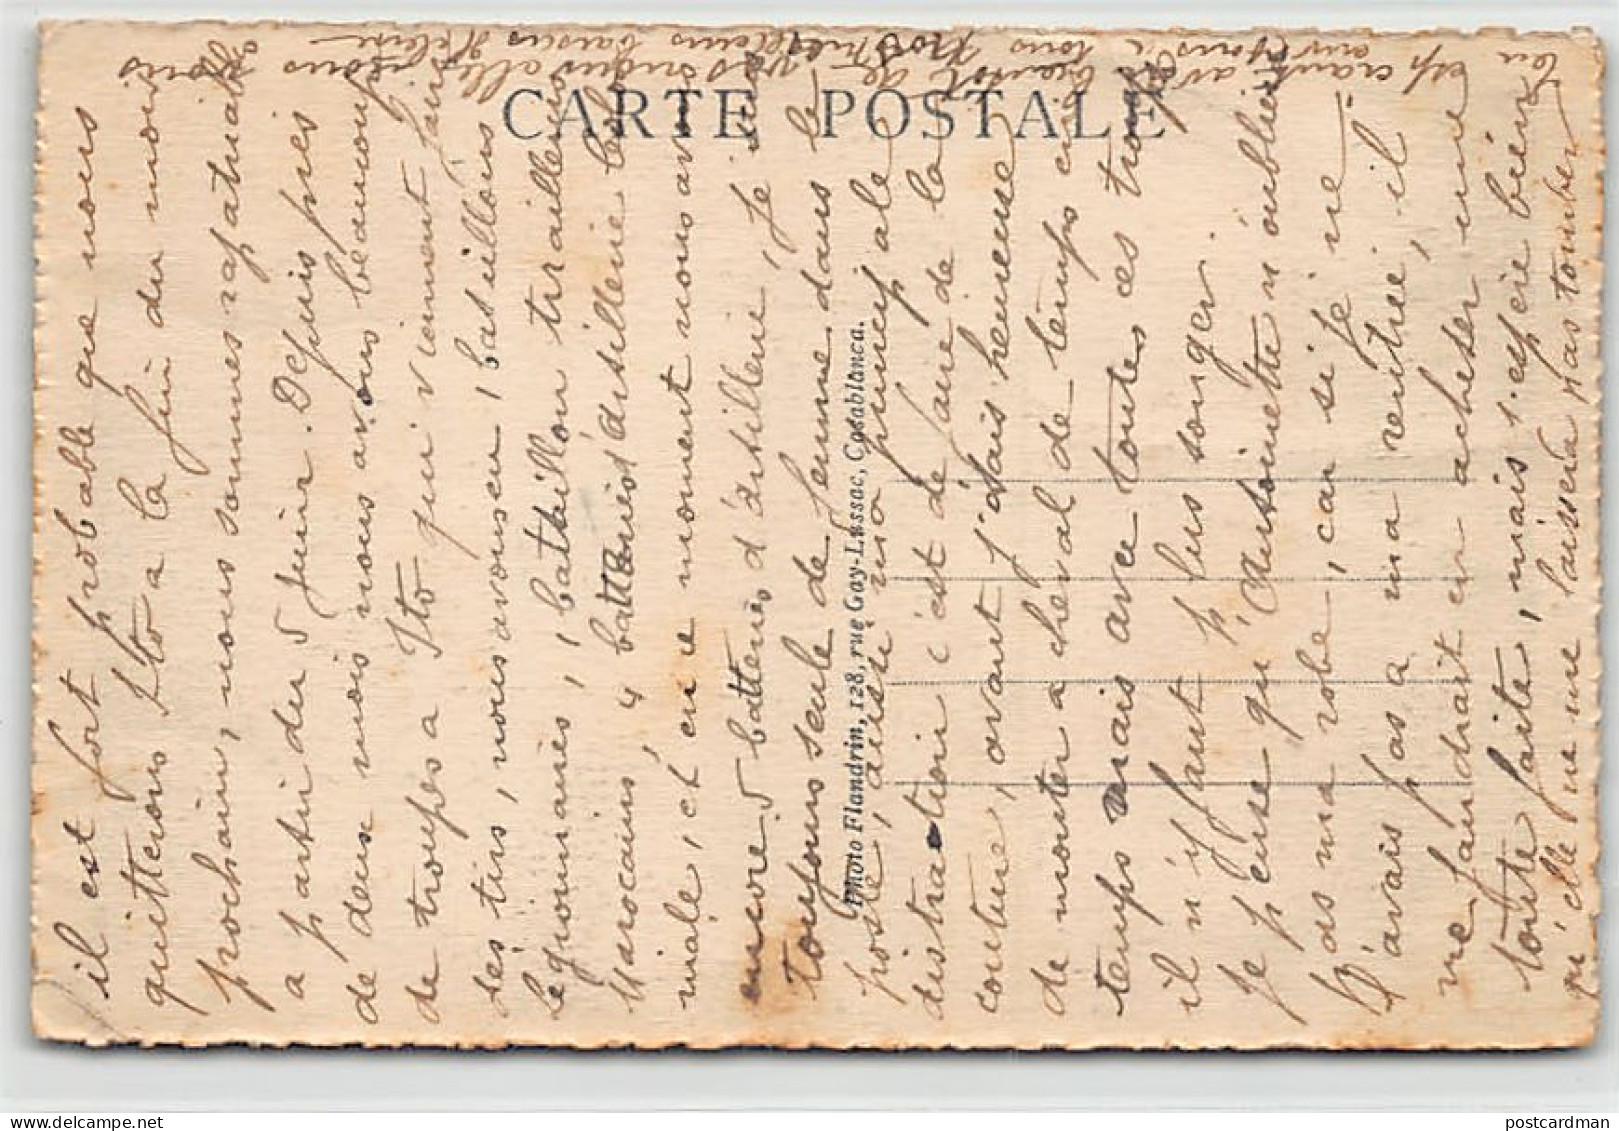 CARTE POSTALE
Photo Flandrin, 128, rue Gay-Lussac, Casablanca.
il est fort probable que nous
quitterons Ito a la fin du mois
prochain, nous sommes rapatriable
a partir du 5 juin. Depuis pres
de deux mois nous avons beaucoup
de troupes a Ito qui viennent faire
des tirs, nous avons eu 1 bataillons
legionnaires, 1 bataillon tirailleurs
Marocains, 4 batteries d'artillerie
niale, et en ce moment nous avons
encore 5 batteries d'artillerie, je suis
toujours seule de femme dans le
poste, aussi ma principale
distraction c'est de faire de la
couture, avant j'étais heureuse
de monter a cheval de temps en
temps mais avec toutes ces troupes
il n'y faut plus songer.
Je pense qu'Antoinette n'oublie
pas ma robe, car si je ne
l'avais pas a ma rentrée, il
me faudrait en acheter une
toute faite, mais j'espère bien
qu'elle ne me laissera pas tomber